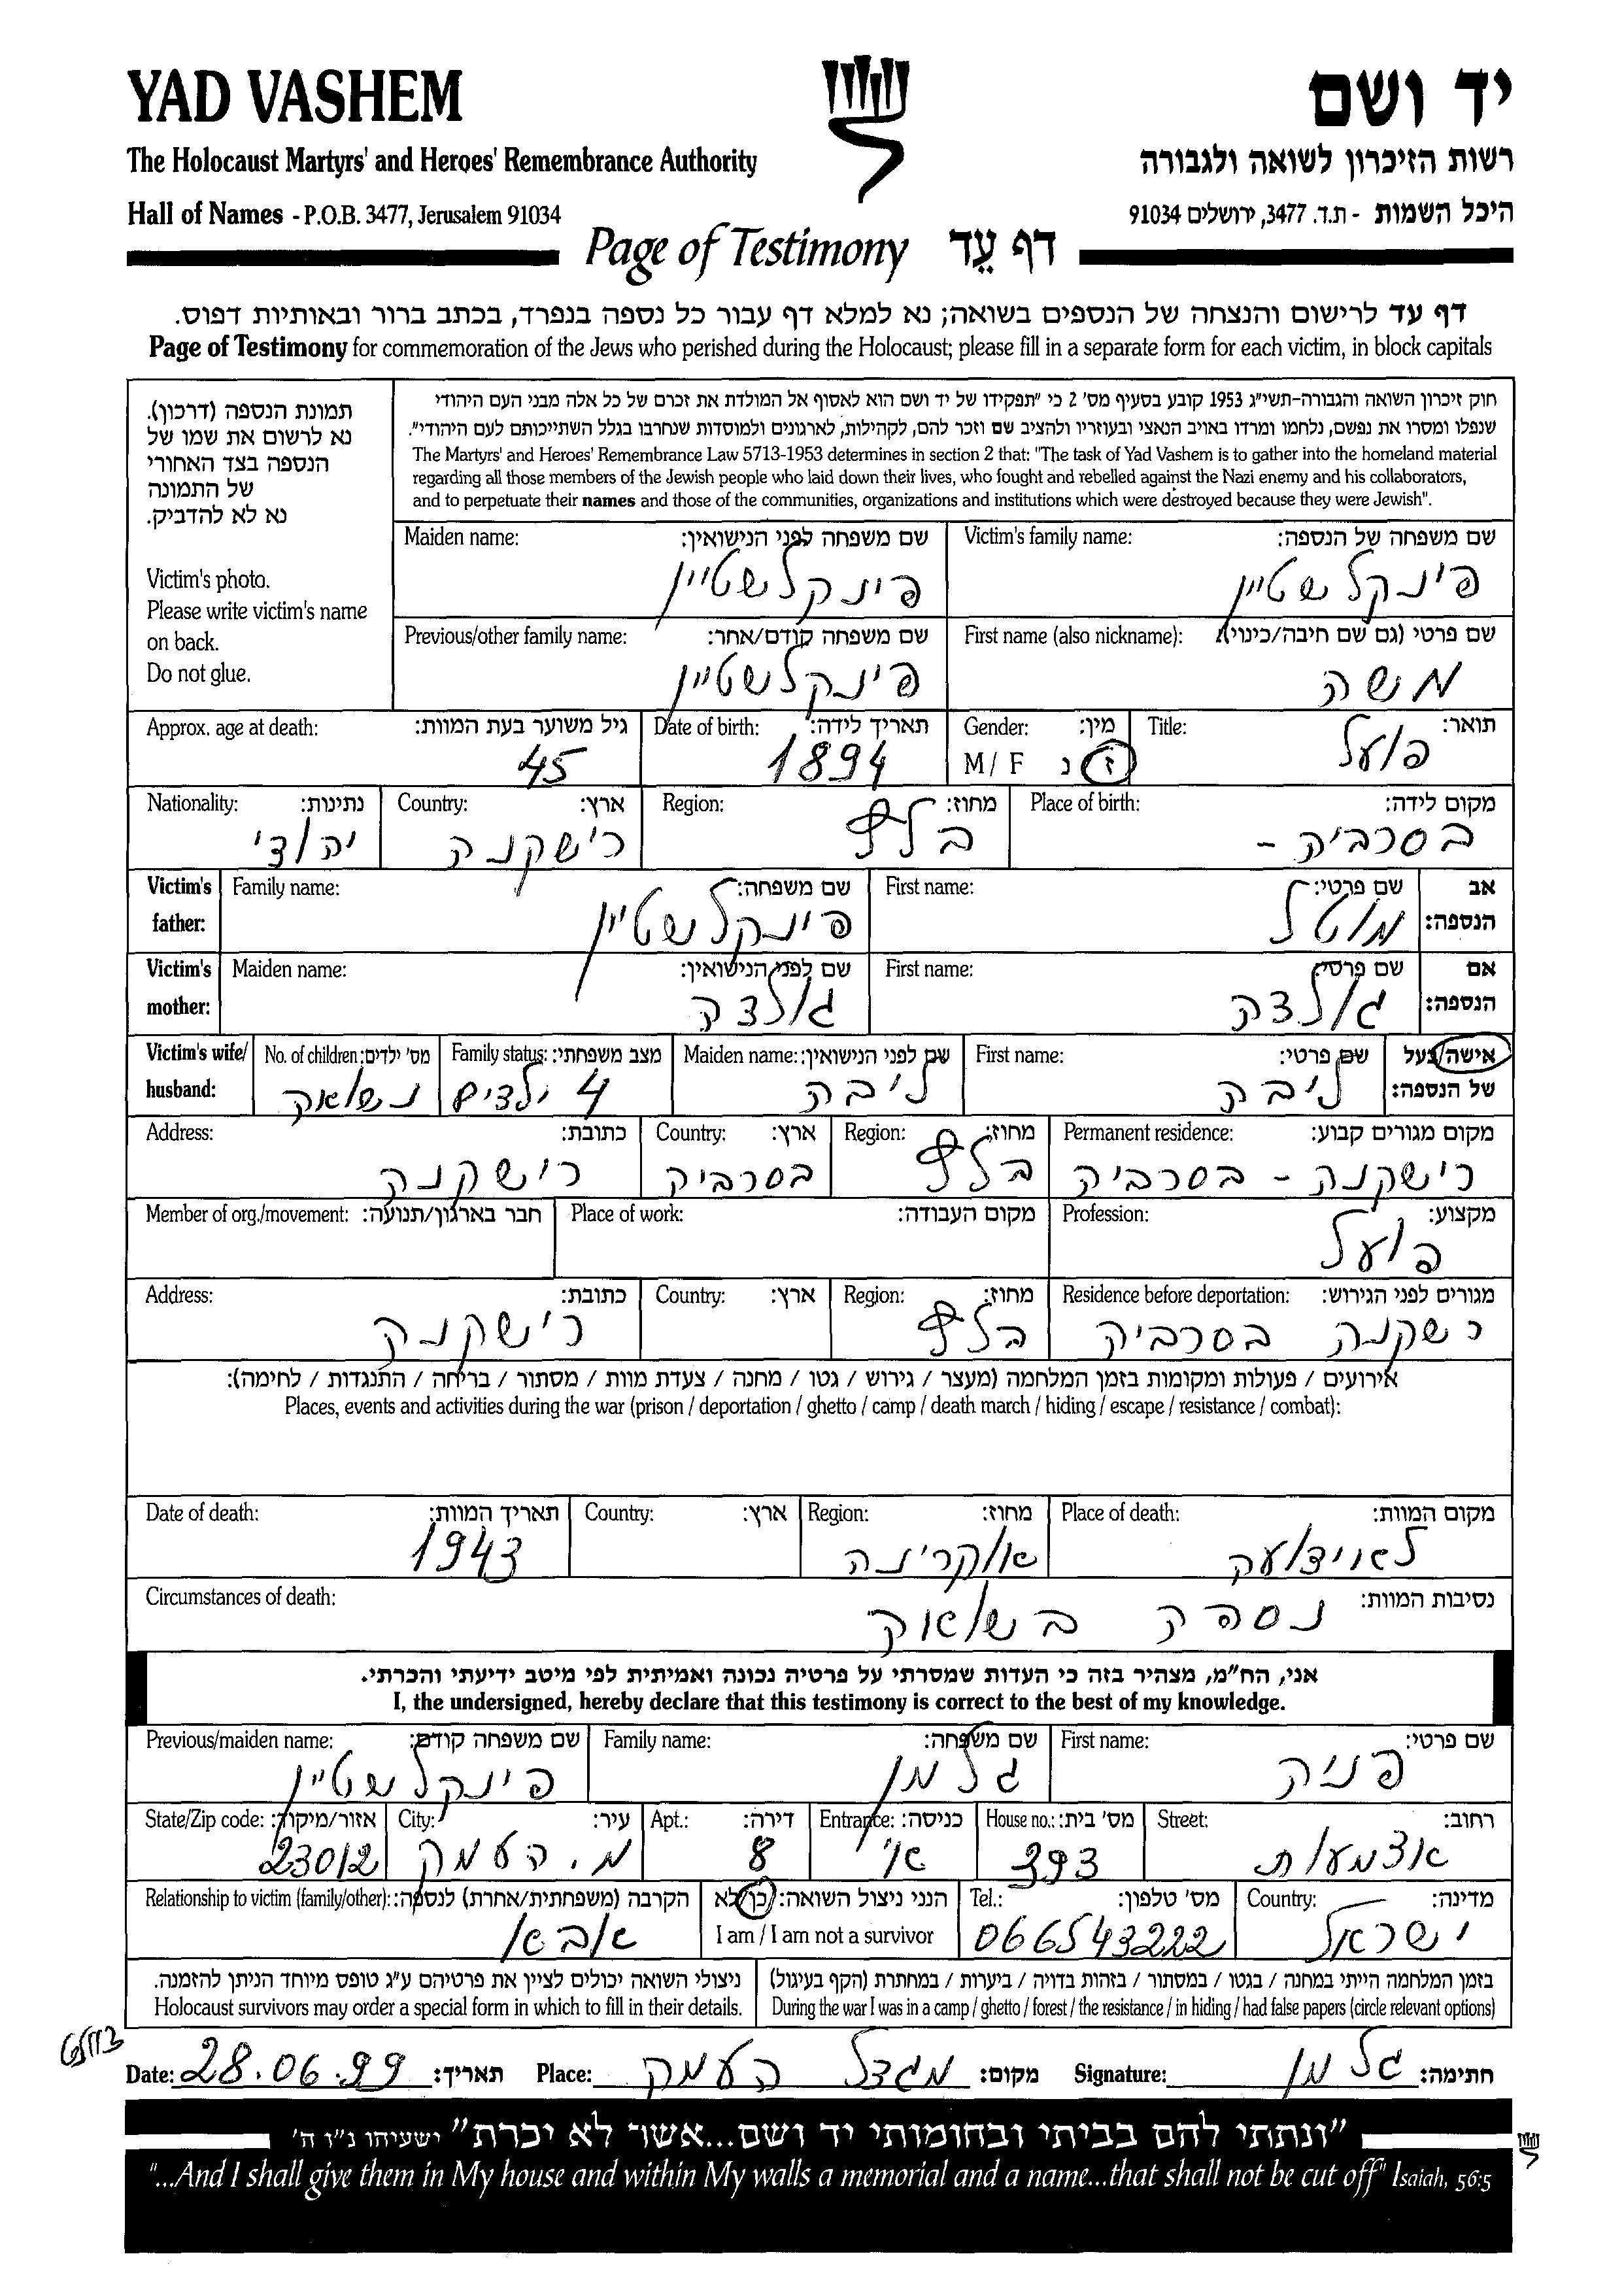 YAD VASHEM
יד ושם
The Holocaust Martyrs' and Heroes' Remembrance Authority
רשות הזיכרון לשואה ולגבורה
Hall of Names - P.O.B. 3477, Jerusalem 91034
היכל השמות - ת.ד. 3477, ירושלים 91034
Page of Testimony דף עֵד
דף עד לרישום והנצחה של הנספים בשואה; נא למלא דף עבור כל נספה בנפרד, בכתב ברור ובאותיות דפוס.
Page of Testimony for commemoration of the Jews who perished during the Holocaust; please fill in a separate form for each victim, in block capitals
תמונת הנספה (דרכון).
נא לרשום את שמו של
הנספה בצד האחורי
של התמונה
נא לא להדביק.
Victim's photo.
Please write victim's name
on back.
Do not glue.
חוק זיכרון השואה והגבורה-תשי"ג 1953 קובע בסעיף מס' 2 כי "תפקידו של יד ושם הוא לאסוף אל המולדת את זכרם של כל אלה מבני העם היהודי
שנפלו ומסרו את נפשם, נלחמו ומרדו באויב הנאצי ובעוזריו ולהציב שם וזכר להם, לקהילות, לארגונים ולמוסדות שנחרבו בגלל השתייכותם לעם היהודי".
The Martyrs' and Heroes' Remembrance Law 5713-1953 determines in section 2 that: "The task of Yad Vashem is to gather into the homeland material
regarding all those members of the Jewish people who laid down their lives, who fought and rebelled against the Nazi enemy and his collaborators,
and to perpetuate their names and those of the communities, organizations and institutions which were destroyed because they were Jewish".
Victim's family name: שם משפחה של הנספה:
פינקלשטיין
Maiden name: שם משפחה לפני הנישואין:
פינקלשטיין
First name (also nickname): שם פרטי (גם שם חיבה/כינוי):
משה
Previous/other family name: שם משפחה קודם/אחר:
פינקלשטיין
Title: תואר:
פועל
Gender: מין:
M / F ז נ
Date of birth: תאריך לידה:
1894
Approx. age at death: גיל משוער בעת המוות:
45
Place of birth: מקום לידה:
בסרביה -
Region: מחוז:
בלץ
Country: ארץ:
רישקנה
Nationality: נתינות:
יהודי
Victim's father: אב הנספה:
First name: שם פרטי:
מוטל
Family name: שם משפחה:
פינקלשטיין
Victim's mother: אם הנספה:
First name: שם פרטי:
גולדה
Maiden name: שם לפני הנישואין:
גולדה
Victim's wife/ husband: אישה/בעל של הנספה:
First name: שם פרטי:
ליבה
Maiden name: שם לפני הנישואין:
ליבה
Family status: מצב משפחתי:
4 ילדים
No. of children: מס' ילדים:
נשואה
Permanent residence: מקום מגורים קבוע:
רישקנה - בסרביה
Region: מחוז:
בלץ
Country: ארץ:
בסרביה
Address: כתובת:
רישקנה
Profession: מקצוע:
פועל
Place of work: מקום העבודה:
Member of org./movement: חבר בארגון/תנועה:
Residence before deportation: מגורים לפני הגירוש:
רשקנה בסרביה
Region: מחוז:
בלץ
Country: ארץ:
Address: כתובת:
רישקנה
אירועים / פעולות ומקומות בזמן המלחמה (מעצר / גירוש / גטו / מחנה / צעדת מוות / מסתור / בריחה / התנגדות / לחימה):
Places, events and activities during the war (prison / deportation / ghetto / camp / death march / hiding / escape / resistance / combat):
Place of death: מקום המוות:
Region: מחוז:
אוקרינה
Country: ארץ:
Date of death: תאריך המוות:
1943
Circumstances of death: נסיבות המוות:
נספה בשואה
אני, הח"מ, מצהיר בזה כי העדות שמסרתי על פרטיה נכונה ואמיתית לפי מיטב ידיעתי והכרתי.
I, the undersigned, hereby declare that this testimony is correct to the best of my knowledge.
First name: שם פרטי:
פניה
Family name: שם משפחה:
גלמן
Previous/maiden name: שם משפחה קודם:
פינקלשטיין
Street: רחוב:
אצמעות
House no.: מס' בית:
393
Entrance: כניסה:
א'
Apt.: דירה:
8
City: עיר:
מ. העמק
State/Zip code: אזור/מיקוד:
23012
Country: מדינה:
ישראל
Tel.: מס' טלפון:
066543222
הנני ניצול השואה: כן/לא
I am / I am not a survivor
Relationship to victim (family/other): הקרבה (משפחתית/אחרת) לנספה:
בזמן המלחמה הייתי במחנה / בגטו / במסתור / בזהות בדויה / ביערות / במחתרת (הקף בעיגול)
During the war I was in a camp / ghetto / forest / the resistance / in hiding / had false papers (circle relevant options)
ניצולי השואה יכולים לציין את פרטיהם ע"ג טופס מיוחד הניתן להזמנה.
Holocaust survivors may order a special form in which to fill in their details.
Date: 28.06.99 תאריך:
Place: מגדל העמק מקום:
Signature: גלמן חתימה:
"ונתתי להם בביתי ובחומותי יד ושם...אשר לא יכרת" ישעיהו נ"ו ה'
"...And I shall give them in My house and within My walls a memorial and a name...that shall not be cut off" Isaiah, 56:5